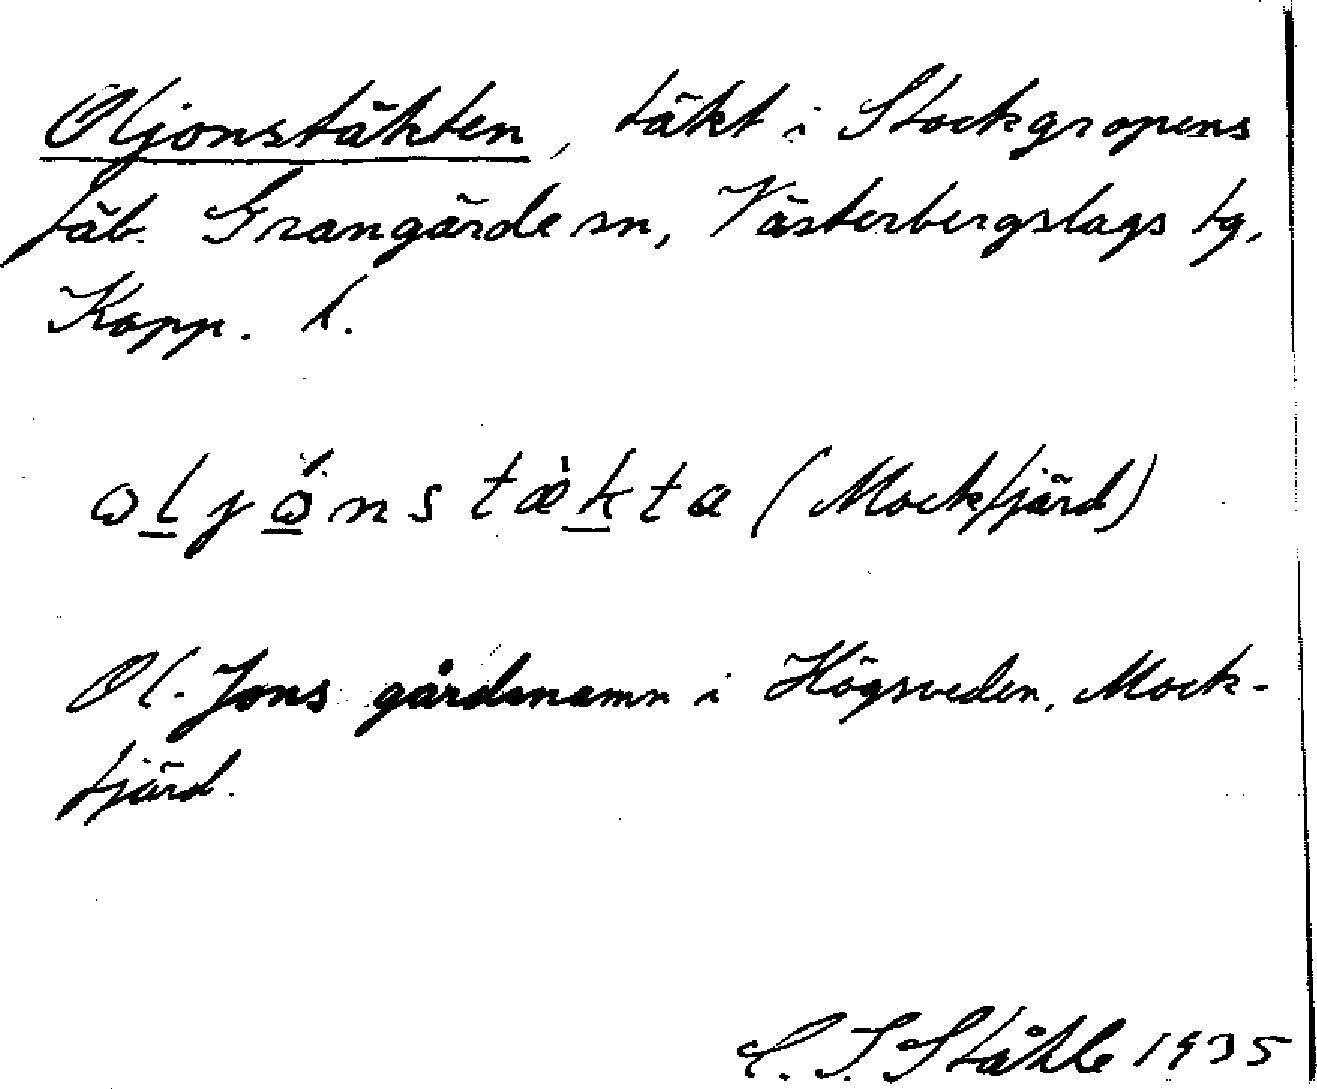 Oljonstäkten, täkt i Stockgropens
fäb. Grangärde sn, Västerbergslags tg,
Kopp. l.
(Mockfjärd)
Ol-Jons gårdsnamn i Högsveden, Mock-
fjärd.
C. I. Ståhle 1935